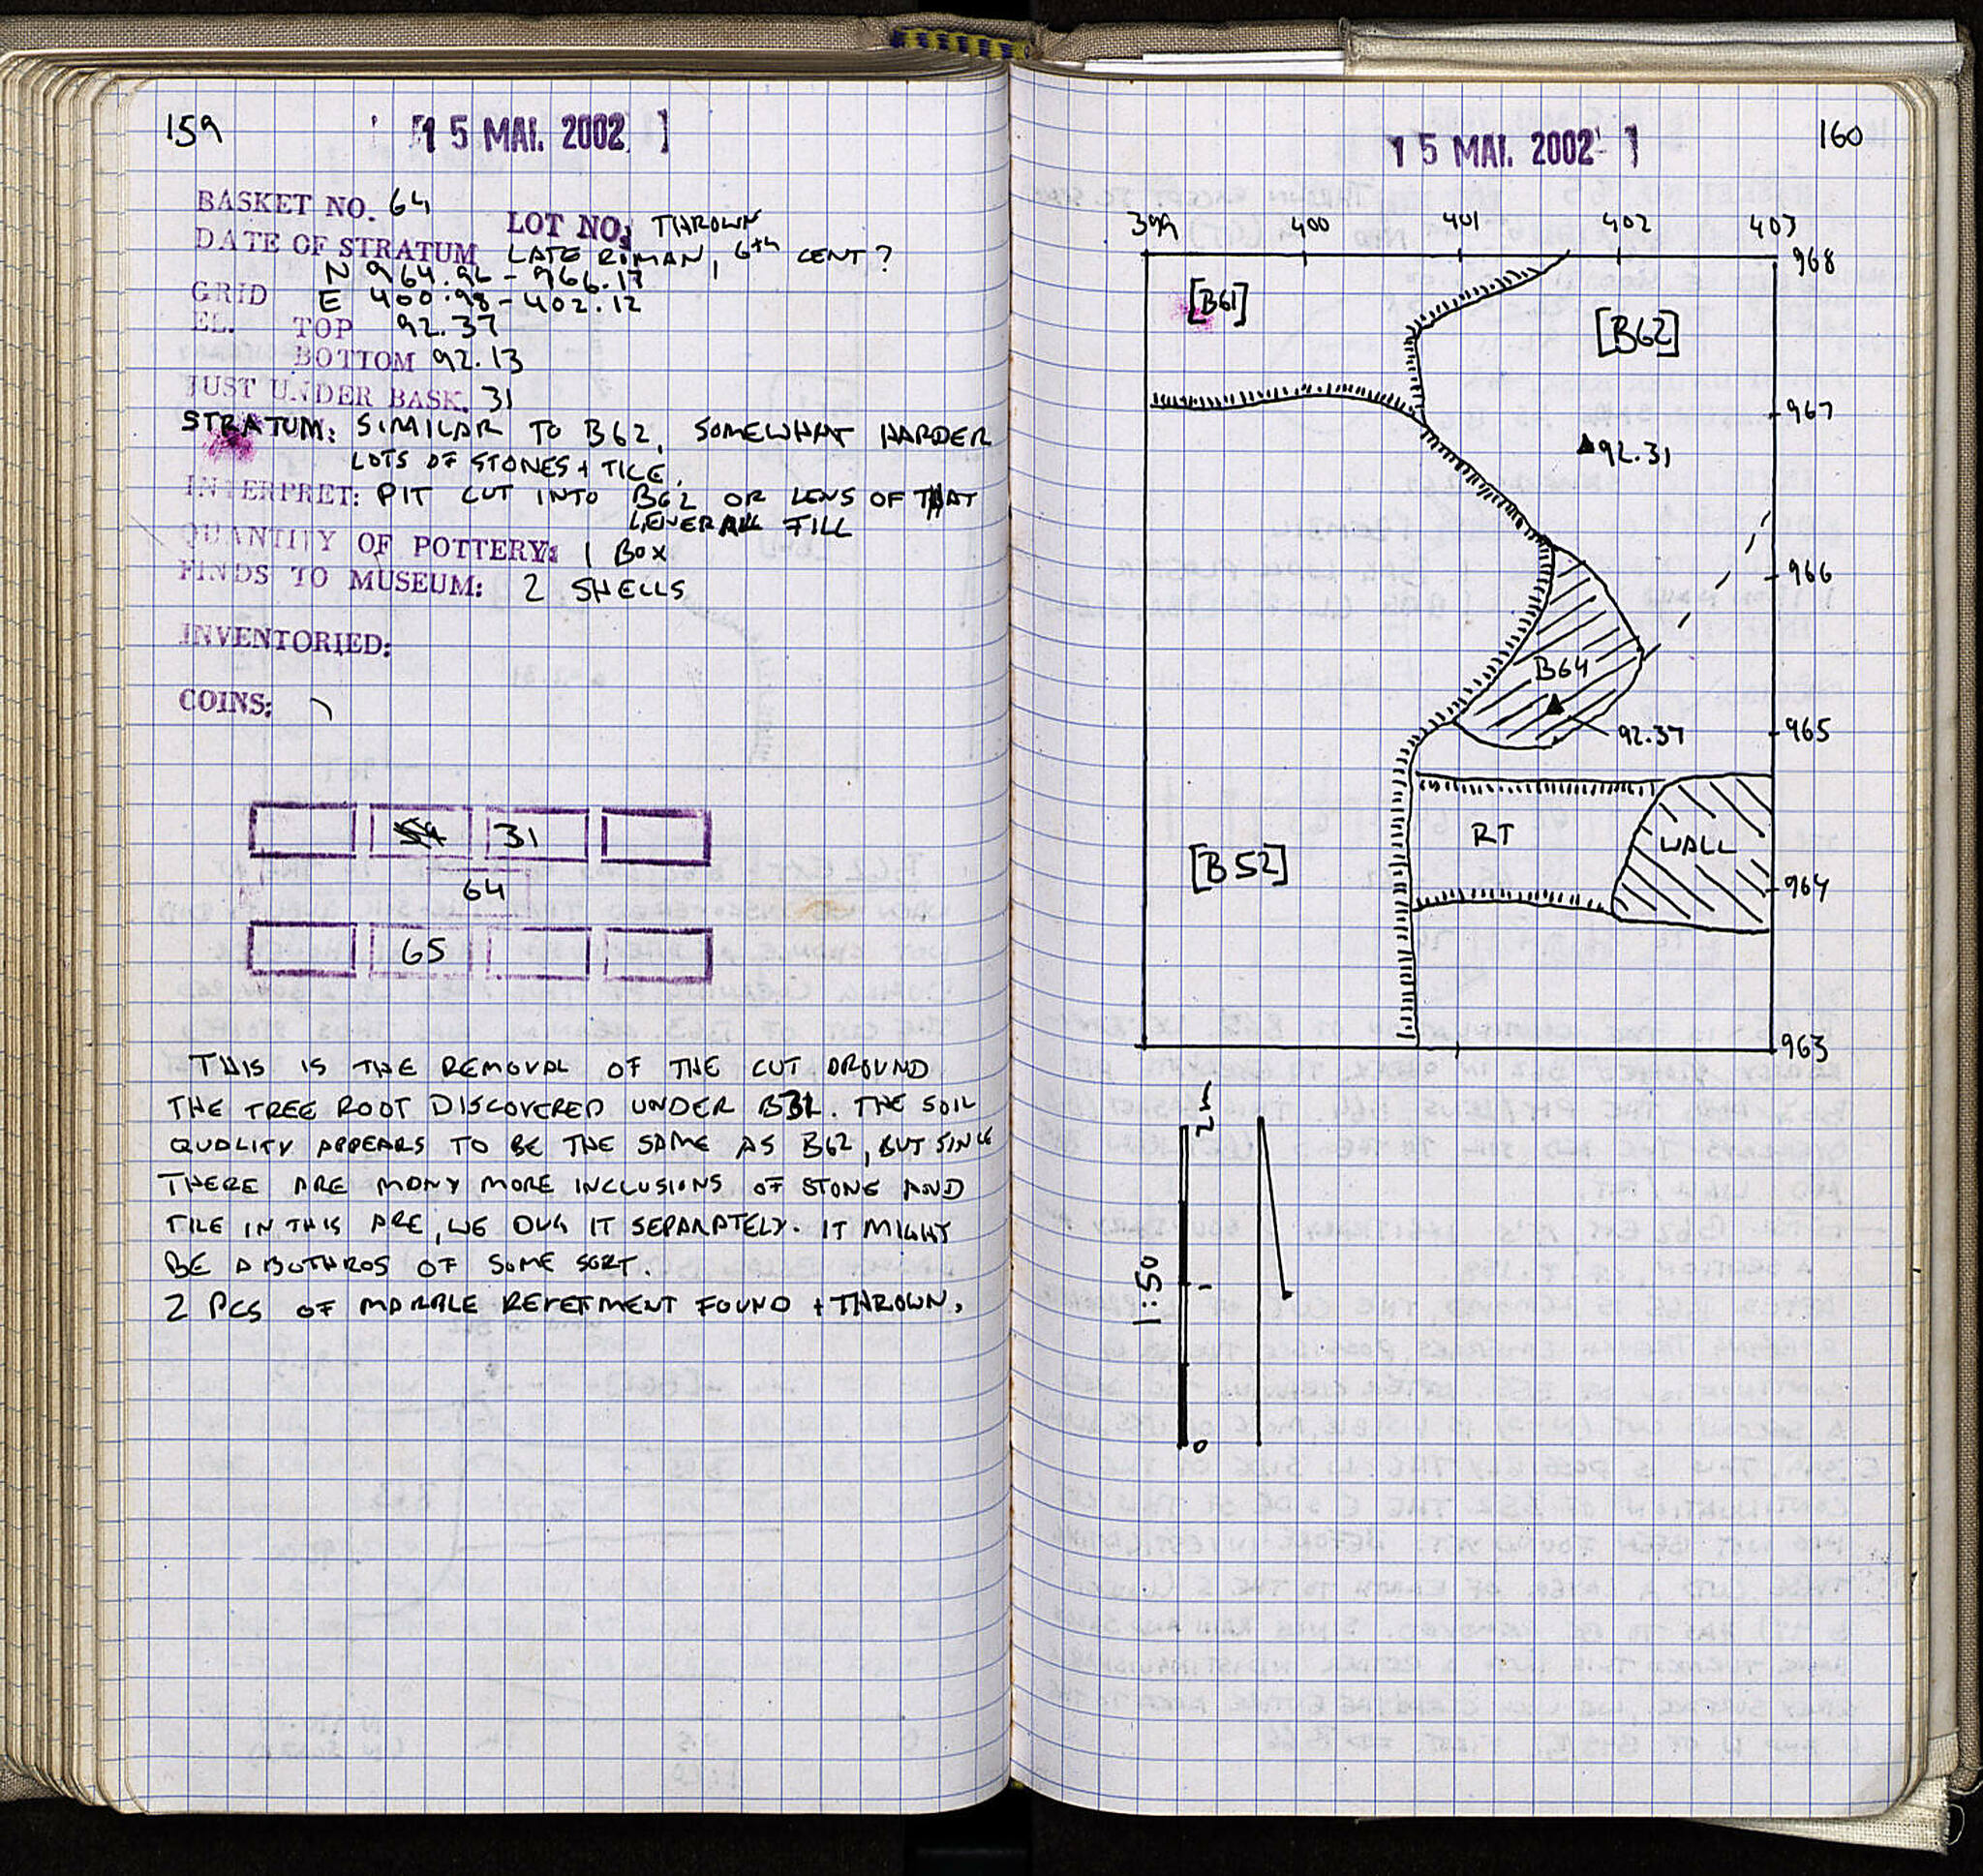 159
[1 5 MAI. 2002 ]
BASKET NO. 64
LOT NO: THROWN
DATE OF STRATUM LATE ROMAN, 6TH CENT?
GRID N 964.96 - 966.17
E 400.98 - 402.12
EL. TOP 92.37
BOTTOM 92.13
JUST UNDER BASK. 31
STRATUM: SIMILAR TO B62, SOMEWHAT HARDER
LOTS OF STONES + TILE.
INTERPRET: PIT CUT INTO B62 OR LENS OF THAT
GENERAL FILL
QUANTITY OF POTTERY: 1 BOX
FINDS TO MUSEUM: 2 SHELLS
INVENTORIED:
COINS:
31
64
65
THIS IS THE REMOVAL OF THE CUT AROUND
THE TREE ROOT DISCOVERED UNDER B31. THE SOIL
QUALITY APPEARS TO BE THE SAME AS B62, BUT SINCE
THERE ARE MANY MORE INCLUSIONS OF STONE AND
TILE IN THIS ARE, WE DUG IT SEPARATELY. IT MIGHT
BE A BOTHROS OF SOME SORT.
2 PCS OF MARBLE REVETMENT FOUND + THROWN.
160
1 5 MAI. 2002 ]
399 400 401 402 403
968
[B61]
[B62]
967
92.31
966
B64
965
92.37
RT
WALL
[B52]
964
963
2m
1
0
1:50